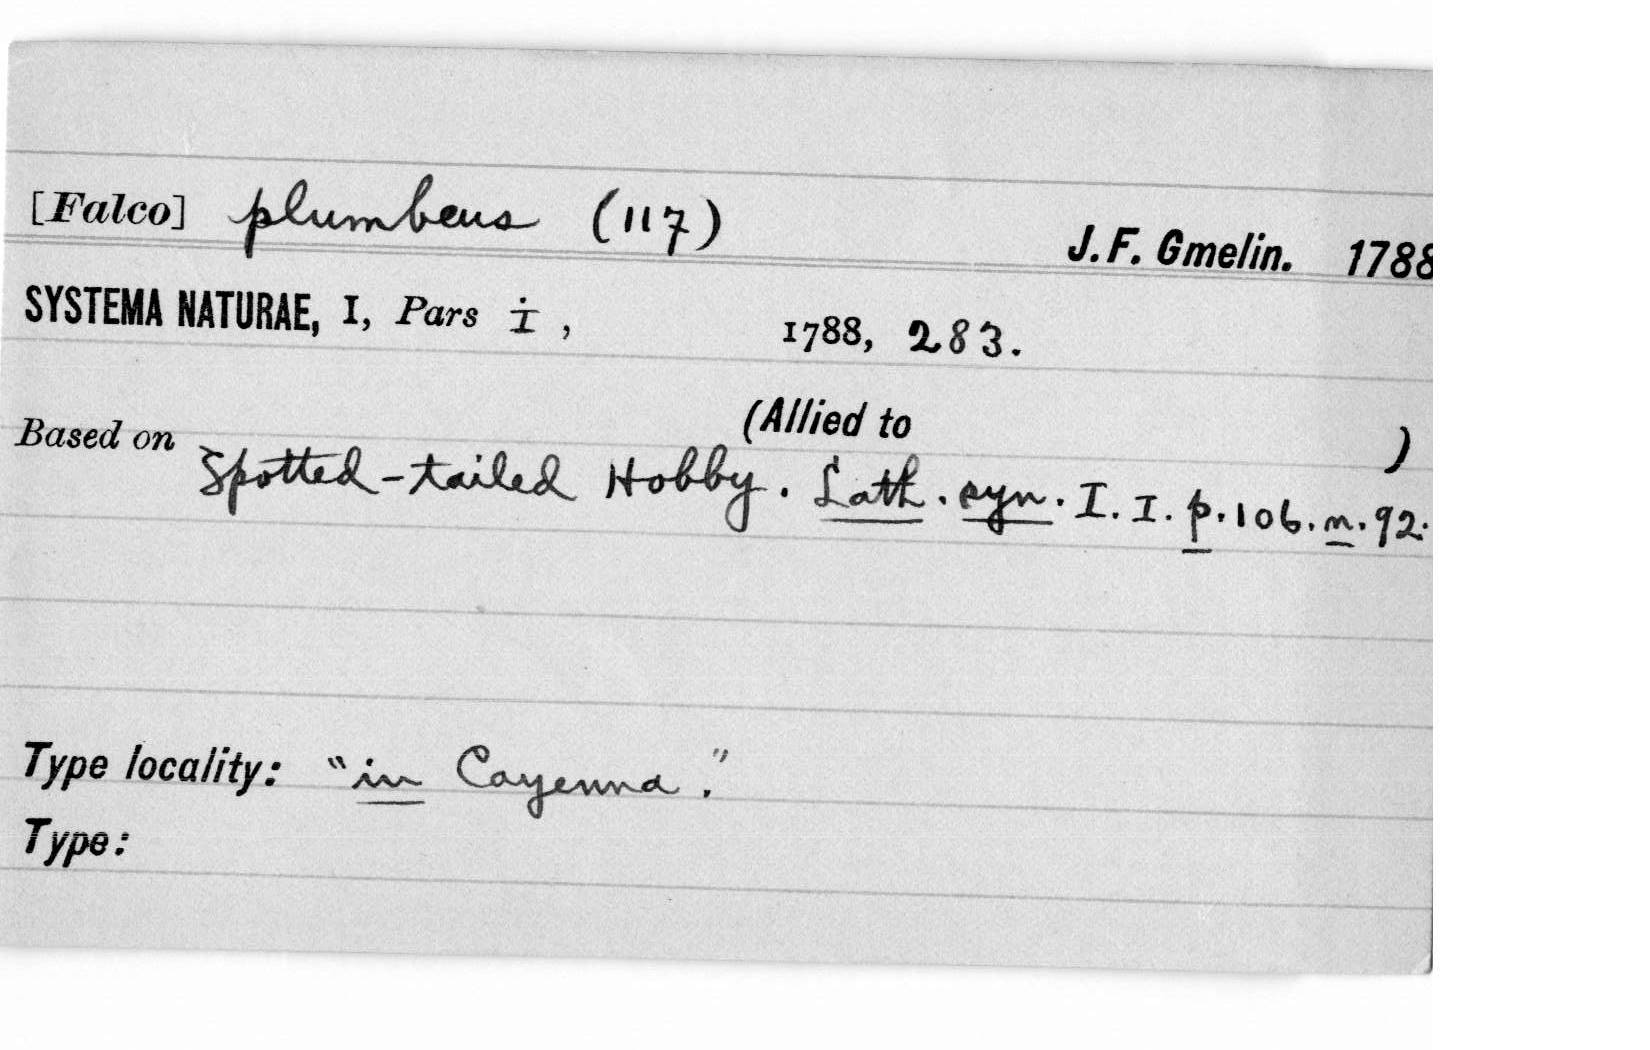 [Falco] plumbeus (117)
J. F. Gmelin. 1788
SYSTEMA NATURAE, I, Pars i, 1788, 283.
(Allied to )
Based on Spotted-tailed Hobby. Lath. syn. I. I. p. 106. n. 92.
Type locality: "in Cayenna."
Type: